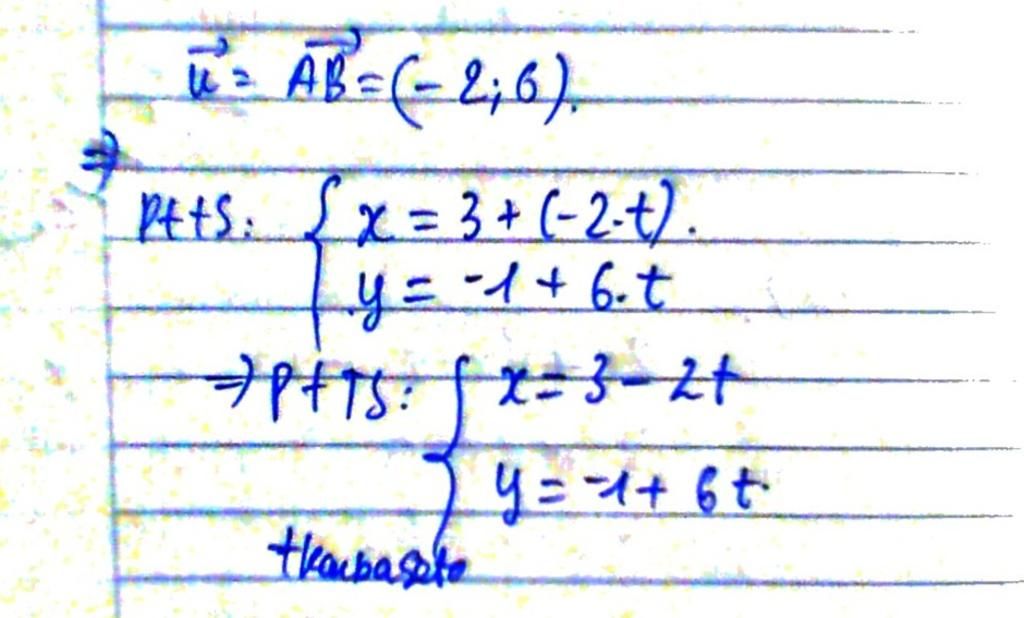 u⃗ = AB⃗ = (-2; 6).
⇒
PttS: { x = 3 + (-2.t).
y = -1 + 6.t
⇒ PtTS: { x = 3 - 2t
y = -1 + 6t.